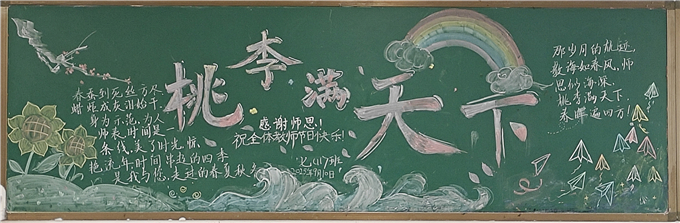 桃李满天下
春蚕到死丝方尽
蜡炬成灰泪始干
身为示范,为人
师表,时间是一
条线,美了时光,惊
艳流年,时间串起的四季
是我与您,走过的春夏秋冬
感谢师恩!
祝全体教师节日快乐!
七(1)班
2025年9月10日
那岁月的航迹,
教诲如春风,师
恩似海深,
桃李满天下,
春晖遍四方!